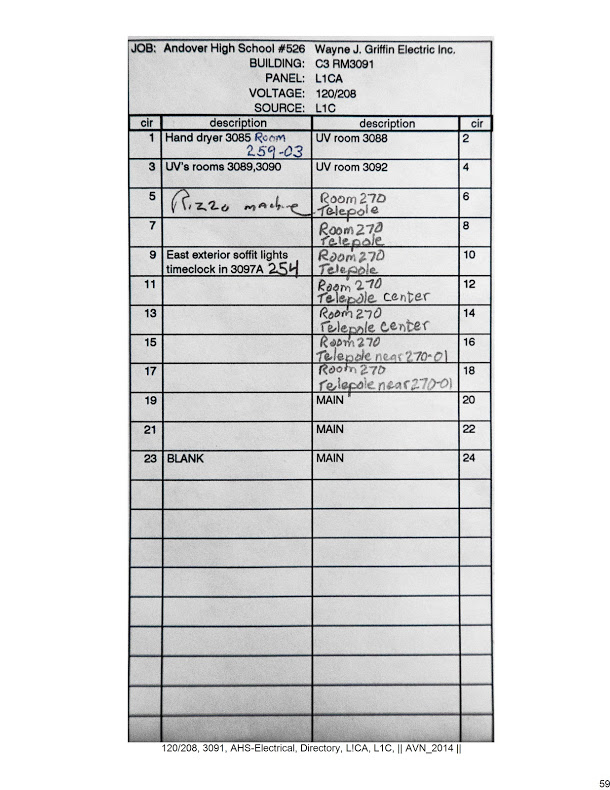 JOB: Andover High School #526 Wayne J. Griffin Electric Inc.
BUILDING: C3 RM3091
PANEL: L1CA
VOLTAGE: 120/208
SOURCE: L1C
cir description description cir
1 Hand dryer 3085 Room UV room 3088 2
259-03
3 UV's rooms 3089,3090 UV room 3092 4
5 Pizza machine Room 270 6
Telepole
7 Room 270 8
Telepole
9 East exterior soffit lights Room 270 10
timeclock in 3097A 254 Telepole
11 Room 270 12
Telepole center
13 Room 270 14
Telepole center
15 Room 270 16
Telepole near 270-01
17 Room 270 18
Telepole near 270-01
19 MAIN 20
21 MAIN 22
23 BLANK MAIN 24
120/208, 3091, AHS-Electrical, Directory, L!CA, L1C, || AVN_2014 ||
59